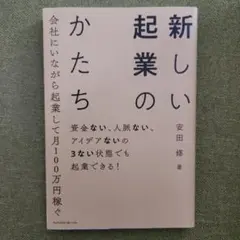 新しい
起業の
かたち
会社にいながら起業して月100万円稼ぐ
資金ない、人脈ない、
アイデアないの
3ない状態でも
起業できる!
安田 修 著